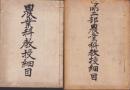 第二部農業科教授細目
農業科教授細目